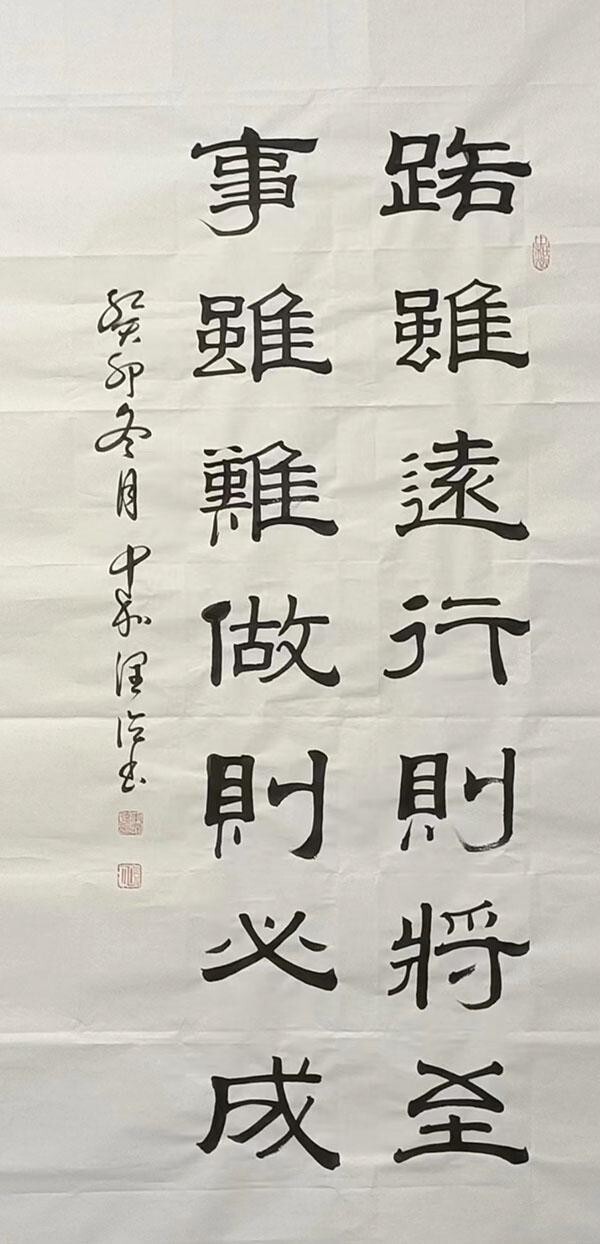 路雖遠行則將至
事雖難做則必成
癸卯冬月中和潤德書